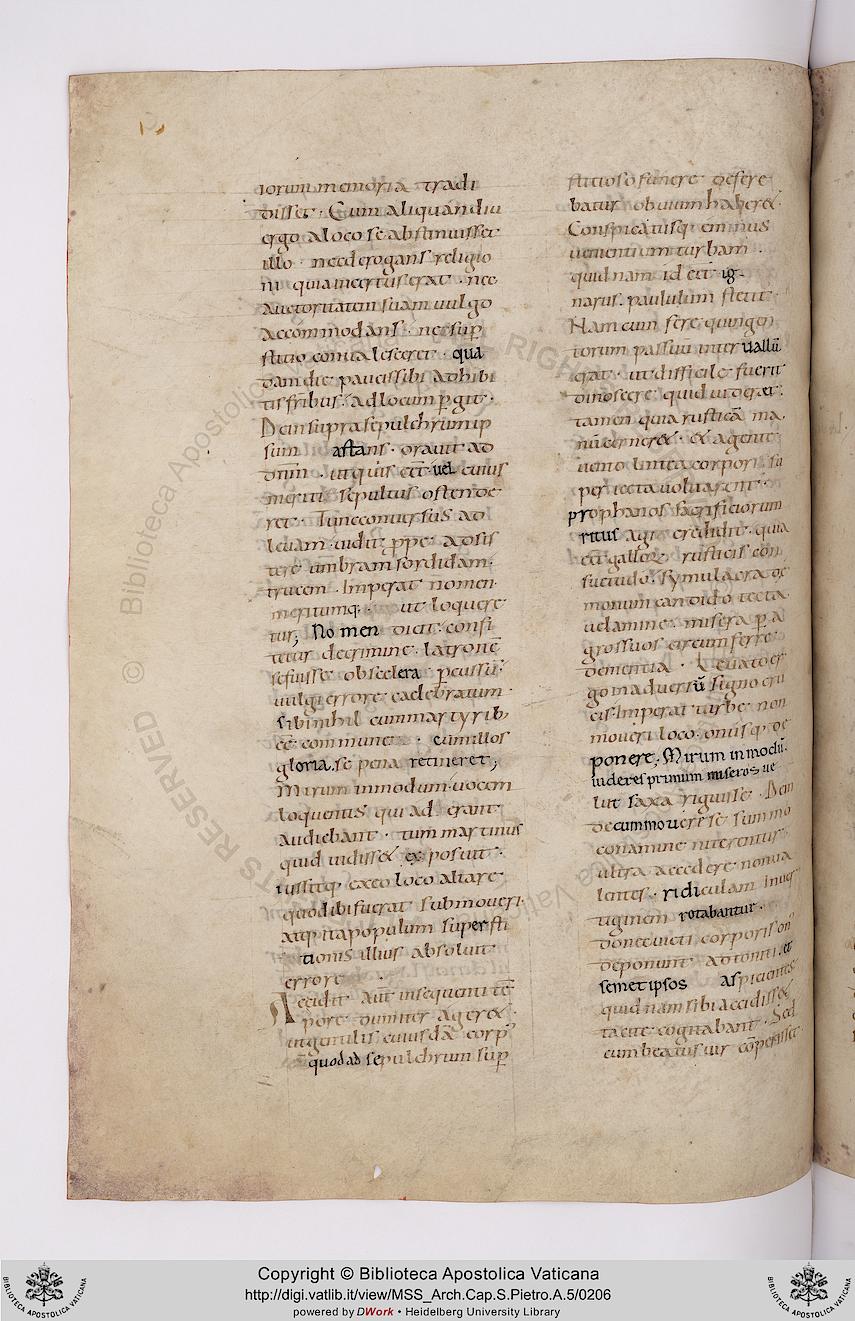 iorum memoria tradi
disset · Cum aliquandiu
ergo aloco se abstinuisset
illo · nec derogans religio
ni quia incertus erat · nec
Auctoritatem suam uulgo
accommodans · ne sup̄
stitio conualesceret · qua
dam die paucis sibi adhibi
tis fr̄ibus · ad locum p̱git ·
Dein supra sepulchrum ip
sum astans · orauit ad
dn̄m · ut quis eēt · uel cuius
meriti sepultus ostende
ret · Tunc conuersus ad
leuam · uidit p̱pe adsis
tere umbram sordidam ·
trucem · Imperat nomen ·
meritumq· · ut loquere
tur; Nomen dicit · confi
tetur decrimine · latronē
se fuisse · ob scelera p̱cussū ·
uulgi errore caelebratum ·
sibi nihil cum martyrib;
eē commune · cum illos
gloria · se pena retineret;
Mirum in modum · uocem
loquentis qui ad erant
audiebant · tum martinus
quid uidiss& exposuit ·
iussitq· ex eo loco altare ·
quod ibi fuerat submoueri ·
atq· ita populum supersti
tionis illius absoluit
errore ·
Accidit aūt insequenti tē
pore · dum iter ager& ·
ut gentilis cuiusdā corp̄
quod ad sepulchrum sup̄
stitioso funere defere
batur obuium haber& ·
Conspicatusq· eminus
uenientium turbam ·
quid nam id eēt · ig-
narus · paululum stetit ·
Nam cum fere quingen
torum passuū interuallū
erat · ut difficile fuerit
dinoscere quid uideret ·
tamen quia rusticā ma
nū cerner& · & agente
uento lintea corpori su
per iecta uolitarent ·
prophanos sacrificiorum
ritus agi credidit · quia
eēt gallorū rusticis con
suetudo · symulacra de
monum candido tecta
uelamine · misera p̱ a
gros suos circumferre
dementia · Leuato er
go in aduersū signo cru
cis · Imperat turbe non
moueri loco · onusq· de
ponere; Mirum in modū ·
uideres primum miseros ue
lut saxa riguisse · Dein
de cum mouere se summo
conamine niterentur
ultra accedere non ua
lentes · ridiculam in uer
tiginem rotabantur ·
Donec uicti corporis on
deponunt adtoniti · et
semetipsos aspicientes
quid nam sibi accidiss&
tacite cogitabant · Sed
cum beatus uir cōperisset
RIGHTS RESERVED © Biblioteca Apostolica Vaticana
Copyright © Biblioteca Apostolica Vaticana
http://digi.vatlib.it/view/MSS_Arch.Cap.S.Pietro.A.5/0206
powered by DWork • Heidelberg University Library
BIBLIOTECA APOSTOLICA VATICANA
BIBLIOTECA APOSTOLICA VATICANA